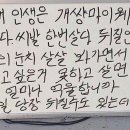 내 인생은 개썅마이웨
다 씨발 한번살다 뒤질인
의 눈치 살살 봐가면서
고싶은거 못하고 살면
얼마나 억울합니까
일 당장 뒤질수도 있는데